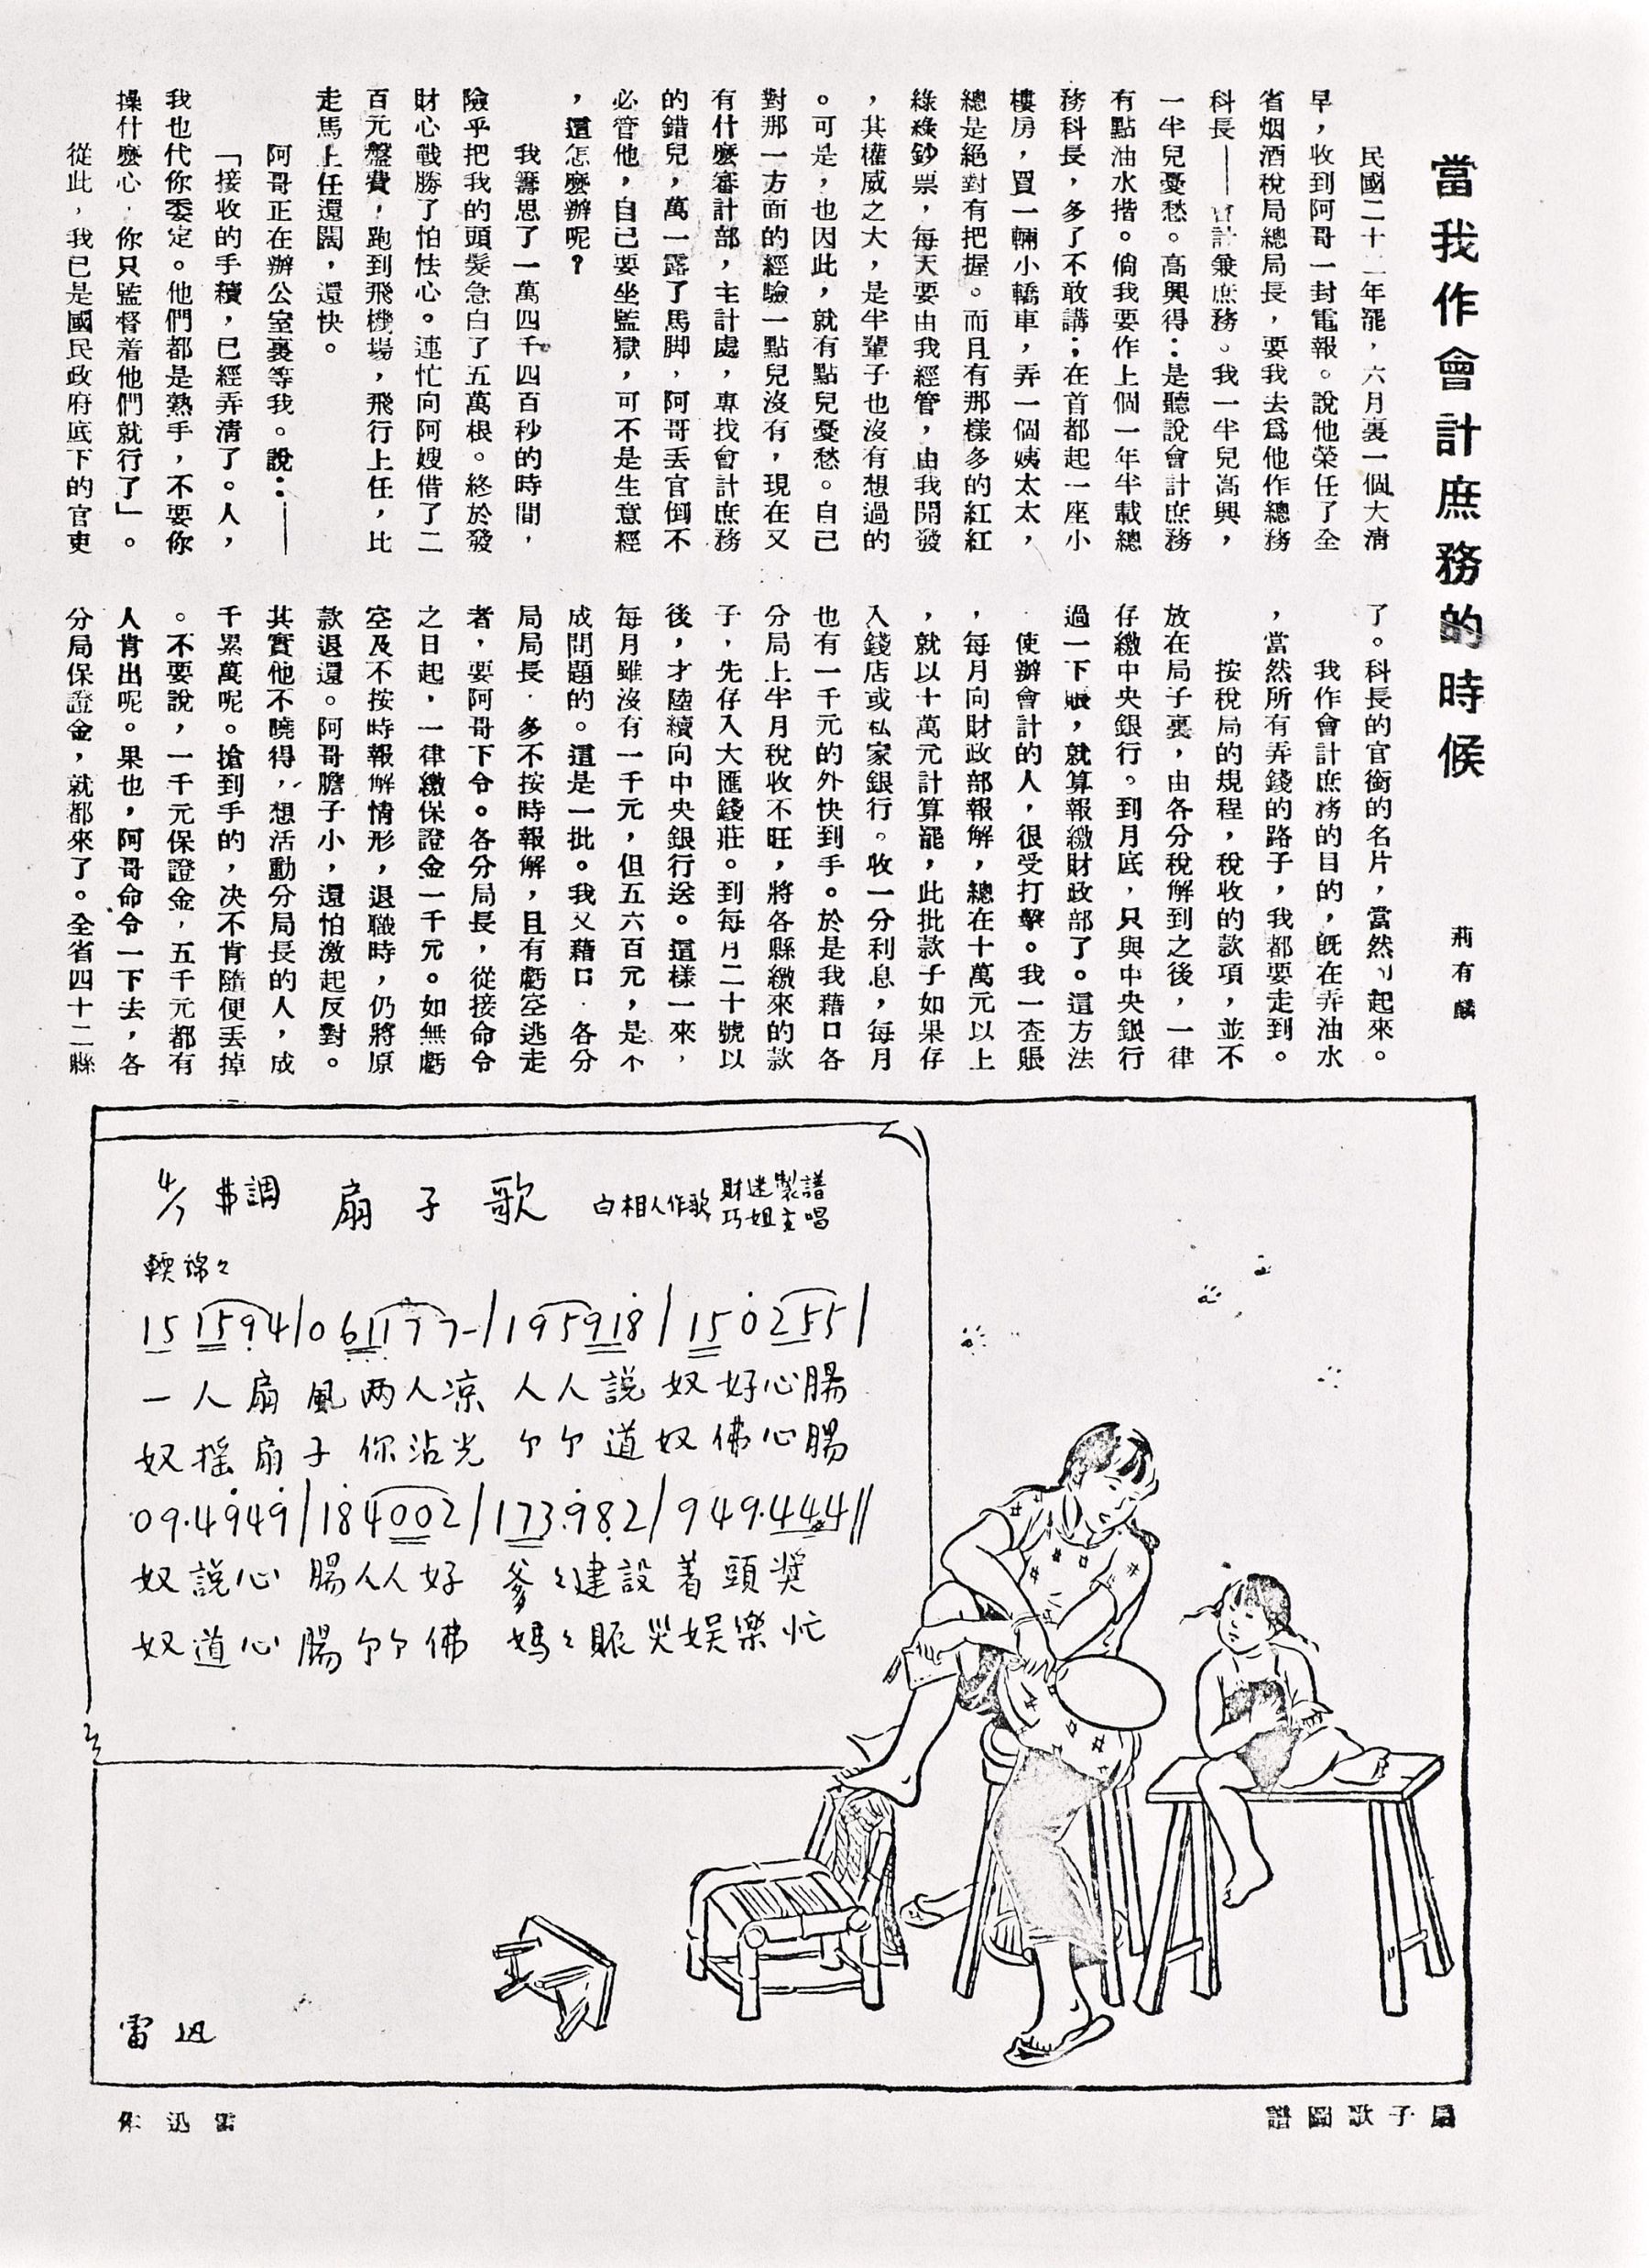 當我作會計庶務的時候
荊有麟
民國二十二年罷，六月裏一個大淸
早，收到阿哥一封電報。說他榮任了全
省烟酒稅局總局長，要我去爲他作總務
科長——會計兼庶務。我一半兒高興，
一半兒憂愁。高興得：是聽說會計庶務
有點油水揩。倘我要作上個一年半載總
務科長，多了不敢講；在首都起一座小
樓房，買一輛小轎車，弄一個姨太太，
總是絕對有把握。而且有那樣多的紅紅
綠綠鈔票，每天要由我經管，由我開發
，其權威之大，是半輩子也沒有想過的
。可是，也因此，就有點兒憂愁。自己
對那一方面的經驗一點兒沒有，現在又
有什麼審計部，主計處，專找會計庶務
的錯兒，萬一露了馬脚，阿哥丟官倒不
必管他，自己要坐監獄，可不是生意經
，還怎麼辦呢？
我籌思了一萬四千四百秒的時間，
險乎把我的頭髮急白了五萬根。終於發
財心戰勝了怕怯心。連忙向阿嫂借了二
百元盤費，跑到飛機場，飛行上任，比
走馬上任還闊，還快。
阿哥正在辦公室裏等我。說：——
「接收的手續，已經弄清了。人，
我也代你委定。他們都是熟手，不要你
操什麼心，你只監督着他們就行了」。
從此，我已是國民政府底下的官吏
了。科長的官銜的名片，當然印起來。
我作會計庶務的目的，旣在弄油水
，當然所有弄錢的路子，我都要走到。
按稅局的規程，稅收的款項，並不
放在局子裏，由各分稅解到之後，一律
存繳中央銀行。到月底，只與中央銀行
過一下賬，就算報繳財政部了。這方法
，使辦會計的人，很受打擊。我一查賬
，每月向財政部報解，總在十萬元以上
，就以十萬元計算罷，此批款子如果存
入錢店或私家銀行。收一分利息，每月
也有一千元的外快到手。於是我藉口各
分局上半月稅收不旺，將各縣繳來的款
子，先存入大匯錢莊。到每月二十號以
後，才陸續向中央銀行送。這樣一來，
每月雖沒有一千元，但五六百元，是不
成問題的。這是一批。我又藉口，各分
局局長，多不按時報解，且有虧空逃走
者，要阿哥下令。各分局長，從接命令
之日起，一律繳保證金一千元。如無虧
空及不按時報解情形，退職時，仍將原
款退還。阿哥膽子小，還怕激起反對。
其實他不曉得，想活動分局長的人，成
千累萬呢。搶到手的，决不肯隨便丟掉
。不要說，一千元保證金，五千元都有
人肯出呢。果也，阿哥命令一下去，各
分局保證金，就都來了。全省四十二縣
4/7 $調 扇子歌 白相人作歌 財迷製譜 巧姐主唱
輭綿々
15 1594|061177-|195918|150255|
一人扇風两人凉 人人說奴好心腸
奴搖扇子你沾光 个个道奴佛心腸
09.4949|184002|173.982|949.444‖
奴說心腸人人好 爹々建設着頭奨
奴道心腸个个佛 媽々賑災娱樂忙
雷迅
扇子歌圖譜
雷迅作